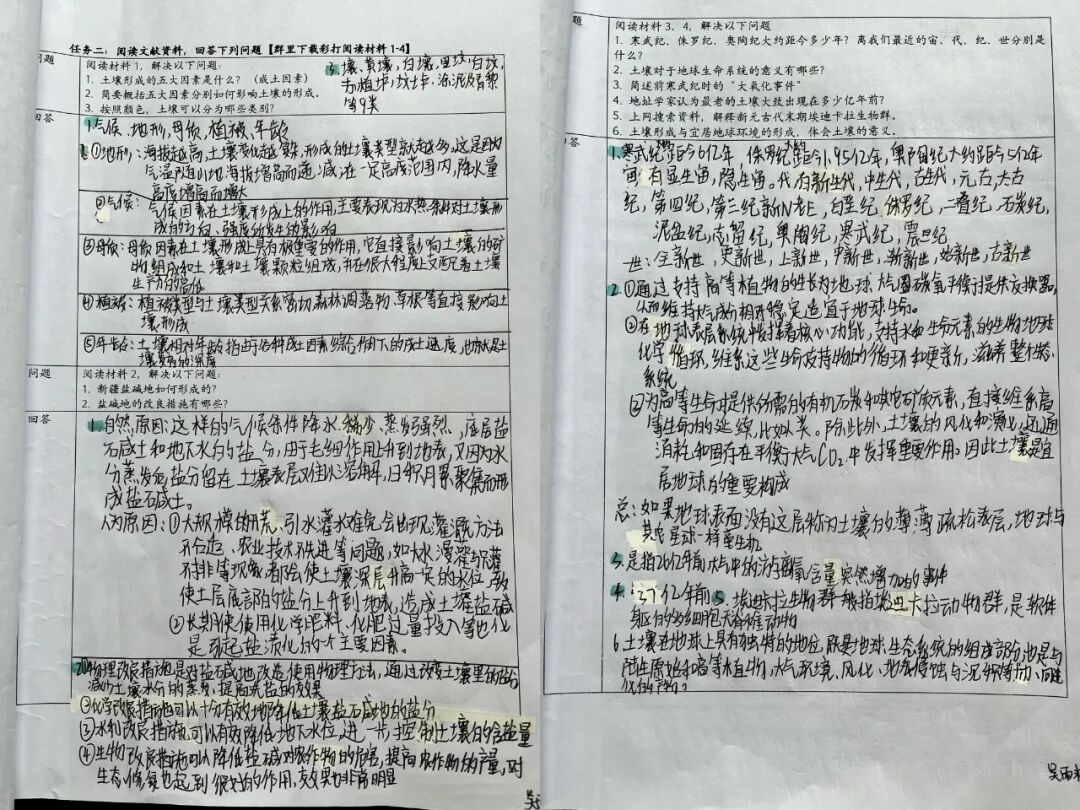 任务二：阅读文献资料，回答下列问题【群里下载彩打阅读材料1-4】
问题
阅读材料1，解决以下问题：
1. 土壤形成的五大因素是什么？（成土因素）
2. 简要概括五大因素分别如何影响土壤的形成。
3. 按照颜色，土壤可以分为哪些类别？
3. 壤、黄壤，白壤，黑坟，白坟，
等9类
回答
1. 气候、地形，母质，植被，年龄
①地形：海拔越高，土壤变化越 形成的土壤类型就越多，这是因为
气温随山地海拔增高而递减，在一定高度范围内，降水量
高度增高而增大
②气候：气候因素在土壤形成上的作用，主要表现为水热条件对土壤形
成的方向、强度的发生的影响
③母质：母质因素在土壤形成上具有极重要的作用，它直接影响土壤的矿
物组成和土壤和土壤颗粒组成，并在很大程度上支配着土壤
生产力的高低
④植被：植被类型与土壤类型关系密切，森林凋落物、草根等直接影响土
壤形成
⑤年龄：土壤相对年龄指由于各种成土因素综合作用下的成土速度，也就是土
壤发育的深度
问题
阅读材料2，解决以下问题：
1. 新疆盐碱地如何形成的？
2. 盐碱地的改良措施有哪些？
回答
1. 自然原因：这样的气候条件降水稀少，蒸发强烈，底层盐
石咸土和地下水的盐分，由于毛细作用上升到地表，又因为水
分蒸发后，盐分留在土壤表层 日积月累聚集而形
成盐石咸土。
人为原因：①大规模的开荒，引水灌水难免会出现灌溉方法
不合适、农业技术不先进等问题，如大水漫灌
使土层底部的盐分上升到地表，造成土壤盐碱
②长期使使用化学肥料、化肥过量投入等也化
是引起盐渍化的一个主要因素。
2. ①物理改良措施是对盐石咸地改造使用物理方法，通过改变土壤里的
减少土壤水分的蒸发，提高洗盐的效果
②化学改良措施也可以十分有效地降低土壤盐石咸地的盐分
③水利改良措施，可以有效降低地下水位，进一步控制土壤的含盐量
④生物改良措施可以降低盐石咸对农作物的危害，提高农作物的产量，对
生态修复也起到很好的作用，效果也非常明显
题
阅读材料3、4，解决以下问题
1. 寒武纪、侏罗纪、奥陶纪大约距今多少年？离我们最近的宙、代、纪、世分别是
什么？
2. 土壤对于地球生命系统的意义有哪些？
3. 简述前寒武纪时的“大氧化事件”
4. 地址学家认为最老的土壤大致出现在多少亿年前？
5. 上网搜索资料，解释新元古代末期埃迪卡拉生物群。
6. 土壤形成与宜居地球环境的形成，体会土壤的意义。
答
1. 寒武纪距今6亿年，侏罗纪距今1.95亿年，奥陶纪大约距今5亿年
宙：有显生宙，隐生宙。代：有新生代，中生代，古生代，元古，太古
纪，第四纪，第三纪 白垩纪，侏罗纪，二叠纪，石炭纪，
泥盆纪，志留纪，奥陶纪，寒武纪，震旦纪
世：全新世，更新世，上新世，中新世，渐新世，始新世，古新世
2. ①通过支持高等植物的生长为地球大气圈碳氧平衡提供交换器，
从而维持大气成分相对稳定，适宜于地球生命。
②在地球表层系统中扮演着核心功能，支持水和生命元素的生物地球
化学循环，维系这些生命支持物的循环和更新，滋养整个生态
系统
②为高等生命提供所需的有机石炭和其它矿质元素，直接维系高
等生命的延续，比如人类。除此外，土壤的风化和演义，还通
消耗和固存在平衡大气CO2中发挥重要作用。因此土壤是宜
居地球的重要构成
总：如果地球表面没有这层称为土壤的薄薄疏松表层，地球与
其它星球一样寥生机
3. 是指26亿年前大气中的游离氧含量突然增加的事件
4. 27亿年前 5. 埃迪卡拉生物群被指埃迪卡拉动物群，是软体
躯的多细胞无脊椎动物
6. 土壤在地球上具有独特的地位，既是地球生态系统的组成部分，也是与
陆生原始和高等植物、大气环境、风化、地表侵蚀与沉积等协同